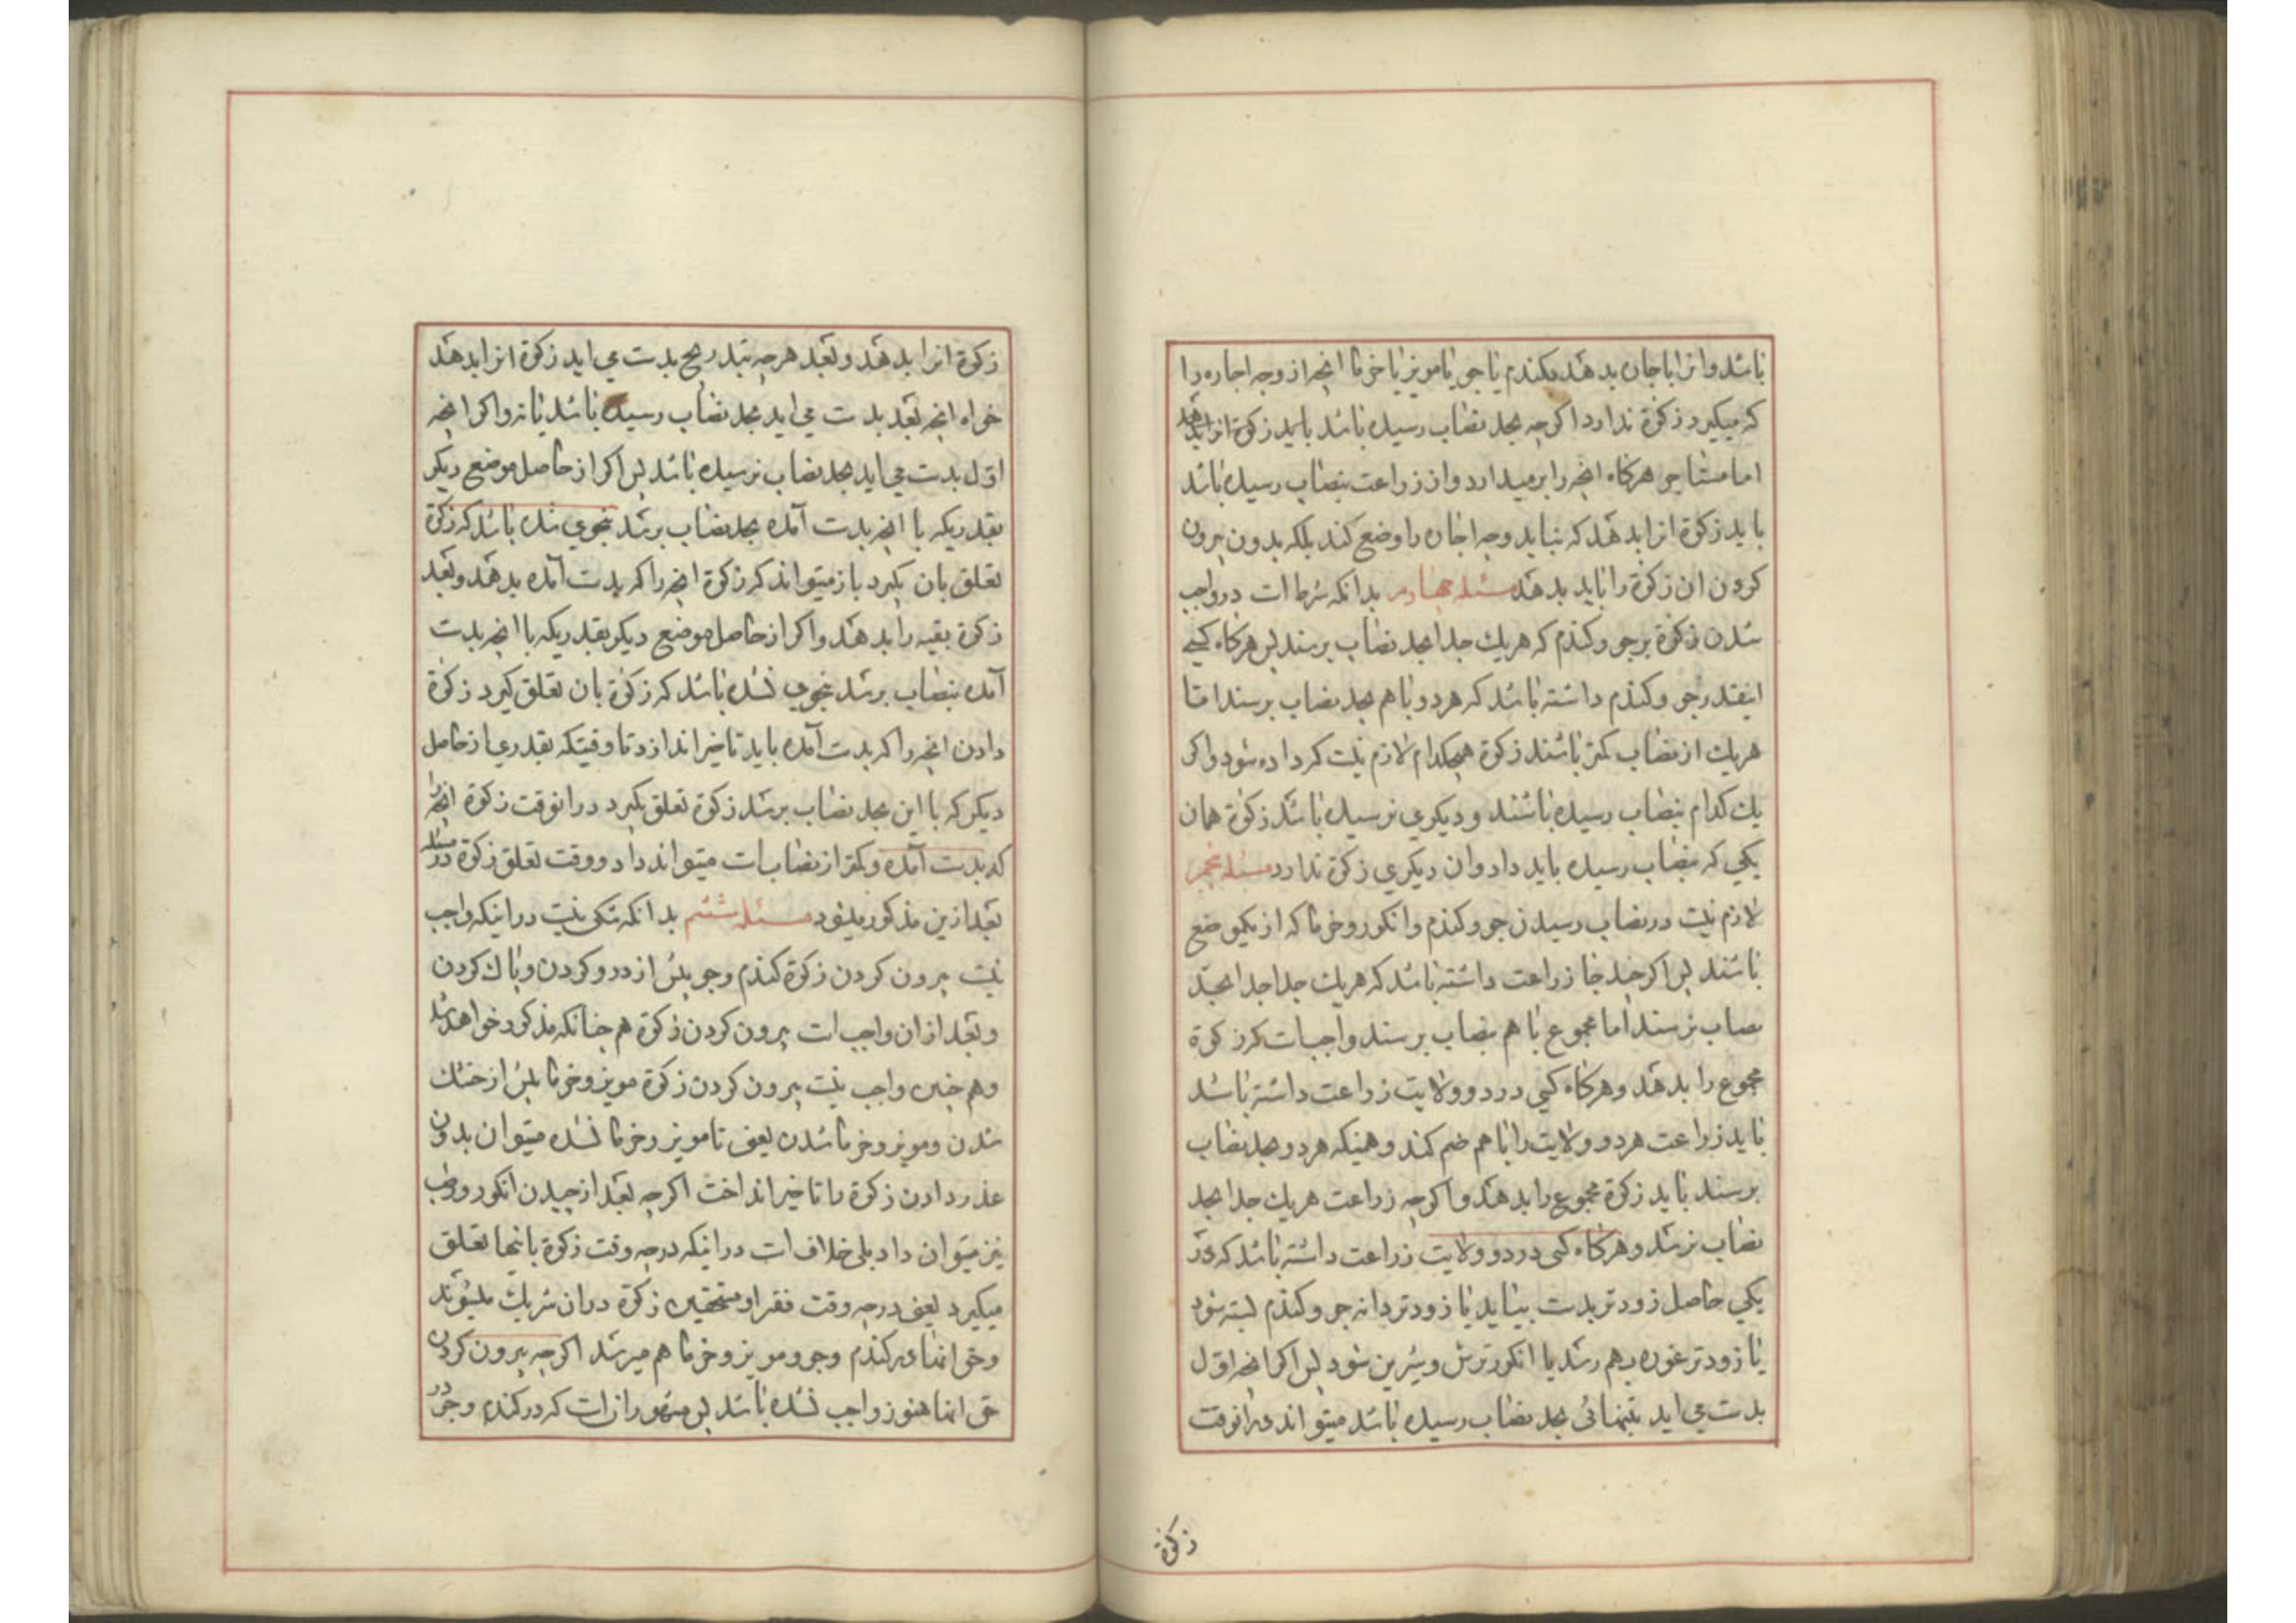 باشد و انرا باجاره بدهد بکندم یا جو یا مویز یا خرما انچه از وجه اجاره را
که میکیرد زکوة ندارد اکرچه بحد نصاب رسیده باشد باید زکوة انرا بدهد
اما مستاجر هرکاه انچه را برمیدارد و ان زراعت بنصاب رسیده باشد
باید زکوة انرا بدهد که نباید وجه اجاره را وضع کند بلکه بدون بیرون
کردن ان زکوة را باید بدهد مسئله چهارم بدانکه شرط است در واجب
شدن زکوة بر جو و کندم که هر یك جدا بحد نصاب برسند پس هرکاه کسی
اینقدر جو و کندم داشته باشد که هر دو با هم بحد نصاب برسند اما
هر یك از نصاب کمتر باشند زکوة هیچکدام لازم نیست که داده شود و اکر
یك کدام بنصاب رسیده باشند و دیکری نرسیده باشد زکوة همان
یکی که بنصاب رسیده باید داد و ان دیکری زکوة ندارد مسئله پنجم
لازم نیست در نصاب رسیدن جو و کندم و انکور و خرما که از یکموضع
باشند پس اکر چند جا زراعت داشته باشد که هر یك جدا جدا بحد
نصاب نرسند اما مجموع با هم بنصاب برسند واجبست که زکوة
مجموع را بدهد و هرکاه کسی در دو ولایت زراعت داشته باشد
باید زراعت هر دو ولایت را با هم ضم کند و همینکه هر دو بحد نصاب
برسند باید زکوة مجموع را بدهد و اکرچه زراعت هر یك جدا بحد
نصاب نرسد و هرکاه کسی در دو ولایت زراعت داشته باشد که در
یکی حاصل زودتر بدست بیاید یا زودتر دانه جو و کندم بسته شود
یا زودتر غوره بهم رسد یا انکور ترش و شیرین شود پس اکر انچه اول
بدست می اید بتنهائی بحد نصاب رسیده باشد میتواند در انوقت
زکوة
زکوة انرا بدهد و بعد هرچه بتدریج بدست می اید زکوة انرا بدهد
خواه انچه بعد بدست می اید بحد نصاب رسیده باشد یا نه و اکر انچه
اول بدست می اید بحد نصاب نرسیده باشد پس اکر از حاصل موضع دیکر
بقدریکه با انچه بدست آمده بحد نصاب برسد بنحوی شده باشد که زکوة
تعلق بان بکیرد باز میتواند که زکوة انچه را که بدست آمده بدهد و بعد
زکوة بقیه را بدهد و اکر از حاصل موضع دیکر بقدریکه با انچه بدست
آمده بنصاب برسد بنحوی نشده باشد که زکوة بان تعلق کیرد زکوة
دادن انچه را که بدست آمده باید تاخیر اندازد تا وقتیکه بقدری از حاصل
دیکر که با این بحد نصاب برسد زکوة تعلق بکیرد در انوقت زکوة انچه را
که بدست آمده و کمتر از نصاب است میتواند داد و وقت تعلق زکوة در مسئله
بعد ازین مذکور میشود مسئله ششم بدانکه شکی نیست در اینکه واجب
نیست بیرون کردن زکوة کندم و جو پیش از درو کردن و پاك کردن
و بعد از ان واجب است بیرون کردن زکوة هم چنانکه مذکور خواهد شد
و هم چنین واجب نیست بیرون کردن زکوة مویز و خرما پیش از خشك
شدن و مویز و خرما شدن یعنی تا مویز و خرما نشده میتوان بدون
عذر دادن زکوة را تاخیر انداخت اکرچه بعد از چیدن انکور و رطب
نیز میتوان داد بلی خلاف است در اینکه درچه وقت زکوة بانها تعلق
میکیرد یعنی درچه وقت فقرا و مستحقین زکوة در ان شریك میشوند
و حق انها در کندم و جو و مویز و خرما هم میرسد اکرچه بیرون کردن
حق انها هنوز واجب نشده باشد پس مشهور ان است که در کندم و جو در